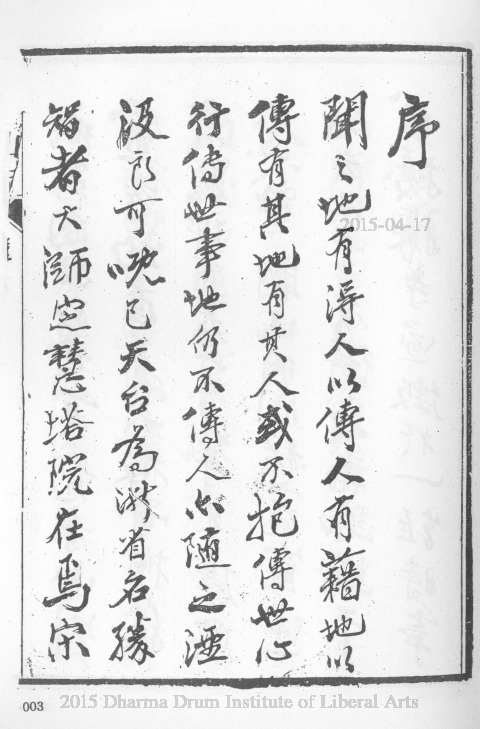 序
聞之地有得人以傳人有藉地以
傳有其地有其人或不抱傳世心
行傳世事地仍不傳人亦隨之湮
沒良可嘅已天台為浙省名勝
智者大師定慧塔院在焉宋
2015-04-17
003
2015 Dharma Drum Institute of Liberal Arts